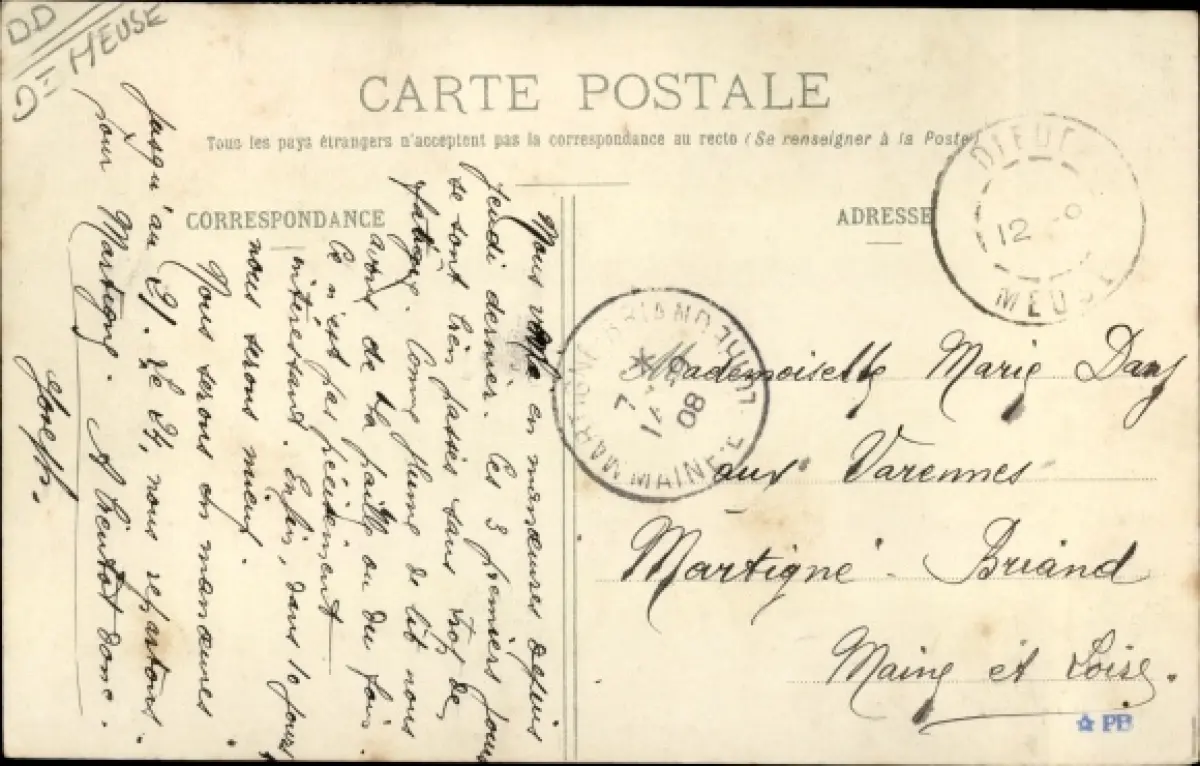 DD
9= MEUSE
CARTE POSTALE
Tous les pays étrangers n'acceptent pas la correspondance au recto (Se renseigner à la Poste)
CORRESPONDANCE
ADRESSE
Nous voilà en manœuvres depuis
jeudi dernier. Les 3 premiers jours
se sont bien passés sans trop de
fatigue. Comme plume de lit nous
avons de la paille ou du foin.
Ce n'est pas précisément
intéressant. Enfin, dans 10 jours
nous serons mieux.
Nous serons en manœuvres
jusqu'au 21. Le 24, nous repartons
pour Martigné. A bientôt donc.
Joseph.
Mademoiselle Marie Dany
aux Varennes
Martigné-Briand
Maine et Loire.
DIEUE
12 -9
MEUSE
MARTIGNÉ-BRIAND
7
11
08
MAINE-
PB